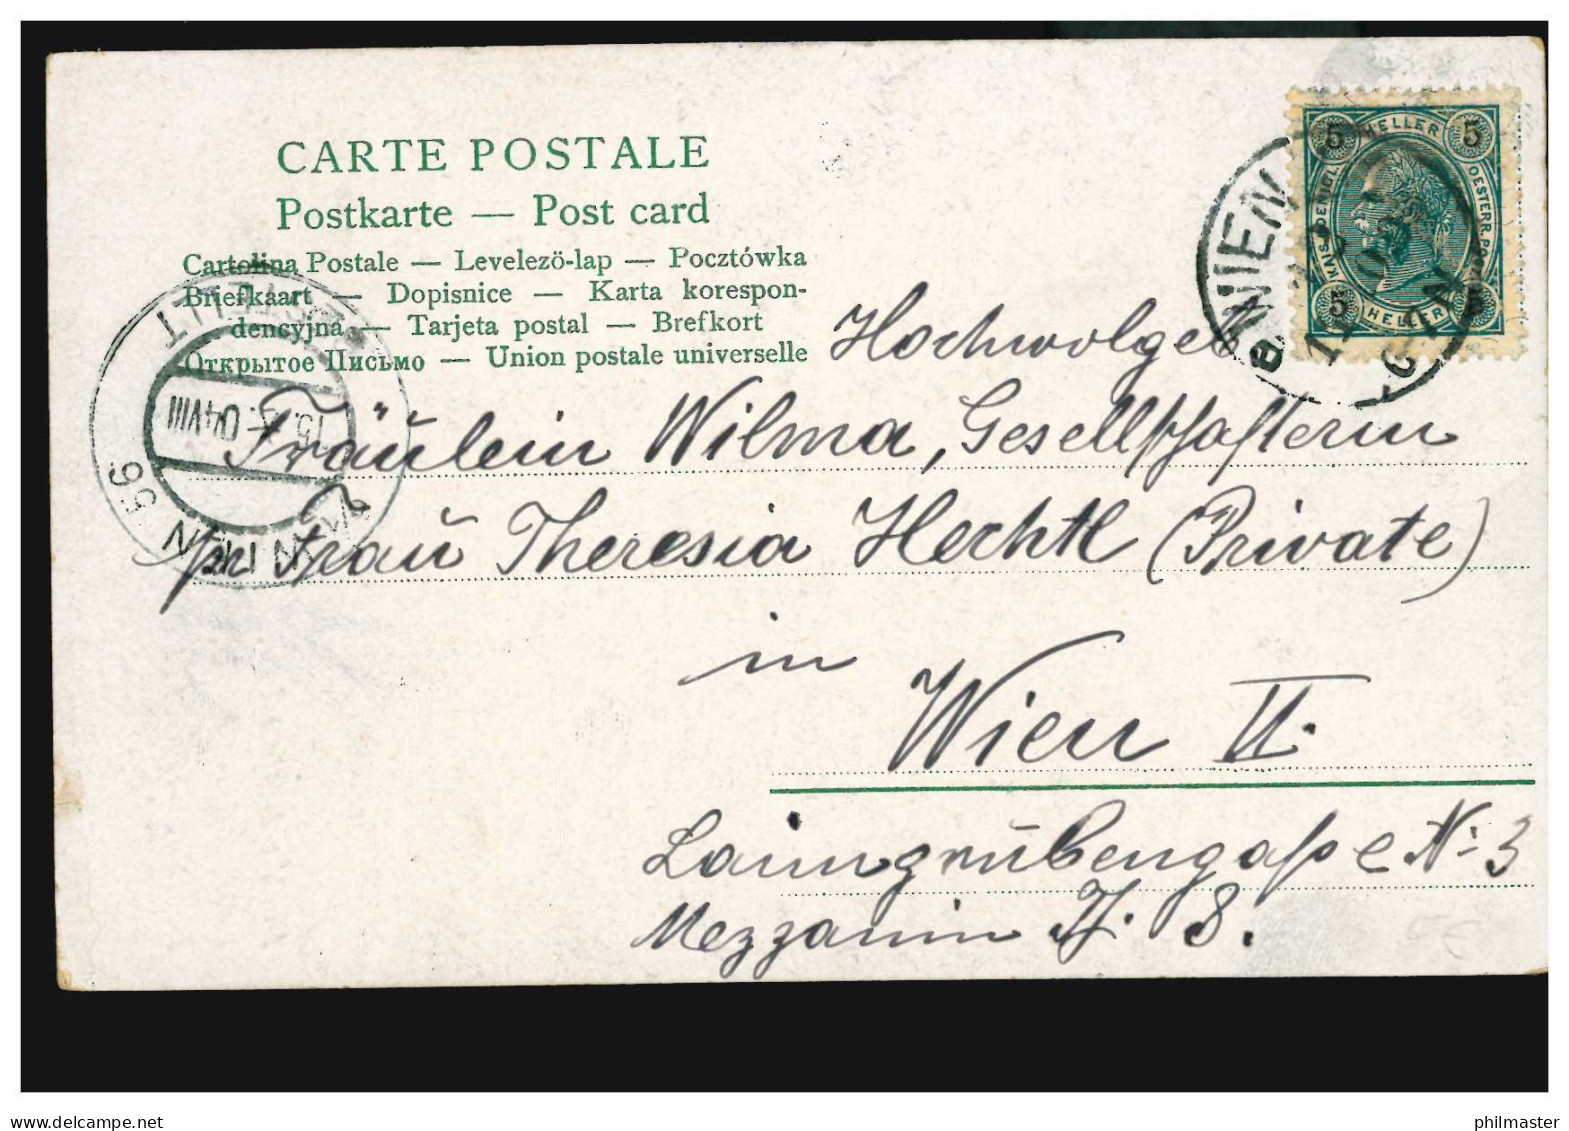 CARTE POSTALE
Postkarte — Post card
Cartolina Postale — Levelezö-lap — Pocztówka
Briefkaart — Dopisnice — Karta korespon-
dencyjna — Tarjeta postal — Brefkort
Открытое Письмо — Union postale universelle
5 HELLER 5
KAIS. OESTERR. POST
5 HELLER 5
WIEN
BESTELLT
15. 04 VIII
WIEN 56
Hochwolgeb
Fräulein Wilma, Gesellschafterin
pr Frau Theresia Hechtl (Private)
in
Wien II.
Laimgrubengasse No 3
Mezzanin T. 8.
delcampe.net
philmaster